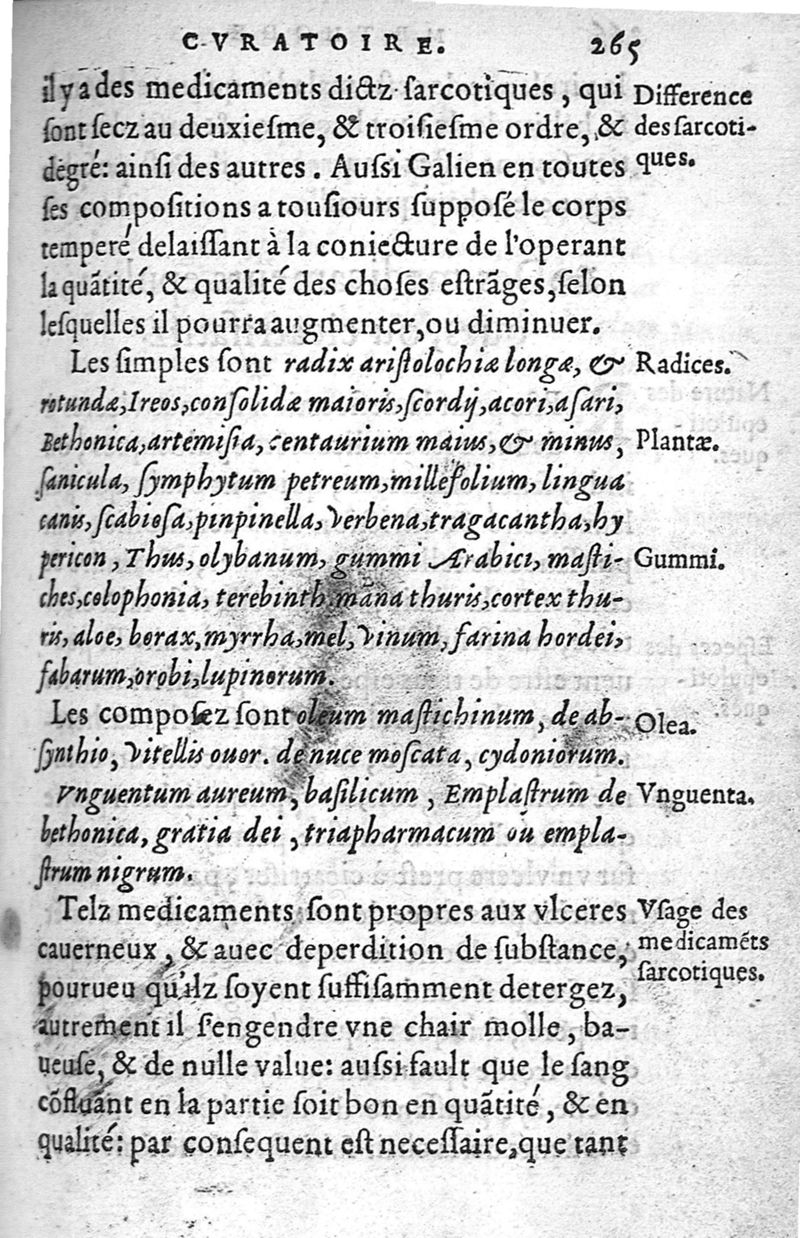 CVRATOIRE. 265
il y a des medicaments dictz sarcotiques, qui
Difference
ſont ſecz au deuxieſme, & troiſieſme ordre, &
des ſarcoti-
dègré: ainſi des autres. Auſsi Galien en toutes
ques.
ſes compoſitions a touſiours ſuppoſé le corps
temperé delaiſſant à la coniecture de l'operant
la quãtité, & qualité des choſes eſtrãges, ſelon
leſquelles il pourra augmenter, ou diminuer.
Les ſimples ſont radix ariſtolochiæ longæ, &
Radices.
rotundæ, Ireos, conſolidæ maioris, ſcordij, acori, aſari,
Bethonica, artemiſia, centaurium maius, & minus,
Plantæ.
ſanicula, ſymphytum petreum, millefolium, lingua
canis, ſcabioſa, pinpinella, Verbena, tragacantha, hy
pericon, Thus, olybanum, gummi Arabici, maſti-
Gummi.
ches, colophonia, terebinth. mãna thuris, cortex thu-
ris, aloe, borax, myrrha, mel, Vinum, farina hordei,
fabarum, orobi, lupinorum.
Les compoſez ſont oleum maſtichinum, de ab-
Olea.
ſynthio, Vitellis ouor. de nuce moſcata, cydoniorum.
Vnguentum aureum, baſilicum, Emplaſtrum de
Vnguenta.
bethonica, gratia dei, triapharmacum ou empla-
ſtrum nigrum.
Telz medicaments ſont propres aux vlceres
Vſage des
cauerneux, & auec deperdition de ſubſtance,
medicamẽts
pourueu qu'ilz ſoyent ſuffiſamment detergez,
ſarcotiques.
autrement il s'engendre vne chair molle, ba-
ueuſe, & de nulle value: auſsi fault que le ſang
cõfluant en la partie ſoit bon en quãtité, & en
qualité: par conſequent eſt neceſſaire, que tant